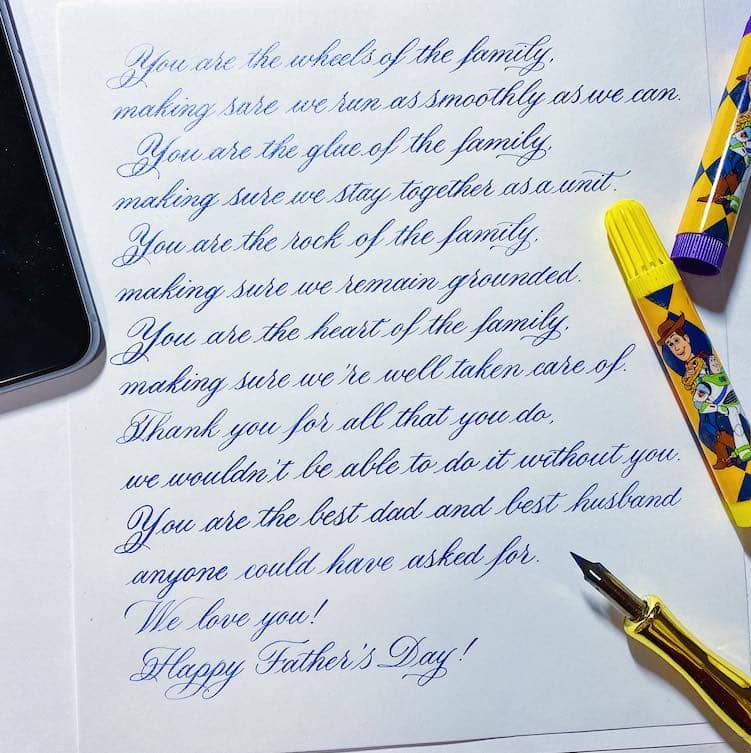 You are the wheels of the family,
making sure we run as smoothly as we can.
You are the glue of the family,
making sure we stay together as a unit.
You are the rock of the family,
making sure we remain grounded.
You are the heart of the family,
making sure we're well taken care of.
Thank you for all that you do,
we wouldn't be able to do it without you.
You are the best dad and best husband
anyone could have asked for.
We love you!
Happy Father's Day!